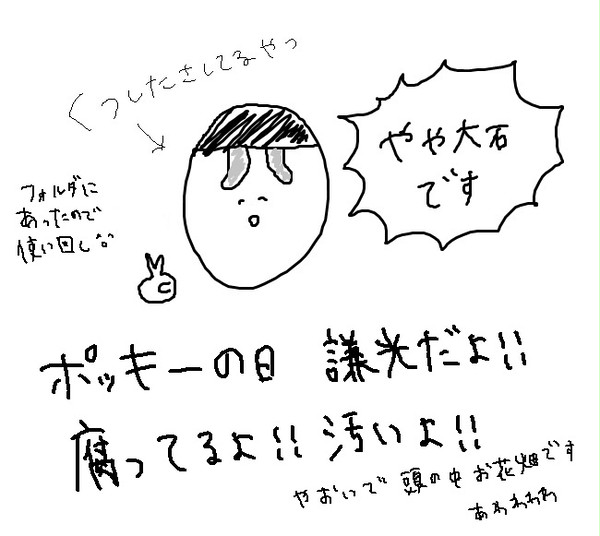 くつしたさしてるやつ
やや大石
です
フォルダに
あったので
使い回し^o^
ポッキーの日 謙光だよ!!
腐ってるよ!!汚いよ!!
やおいで 頭の中 お花畑です
あわわわわ